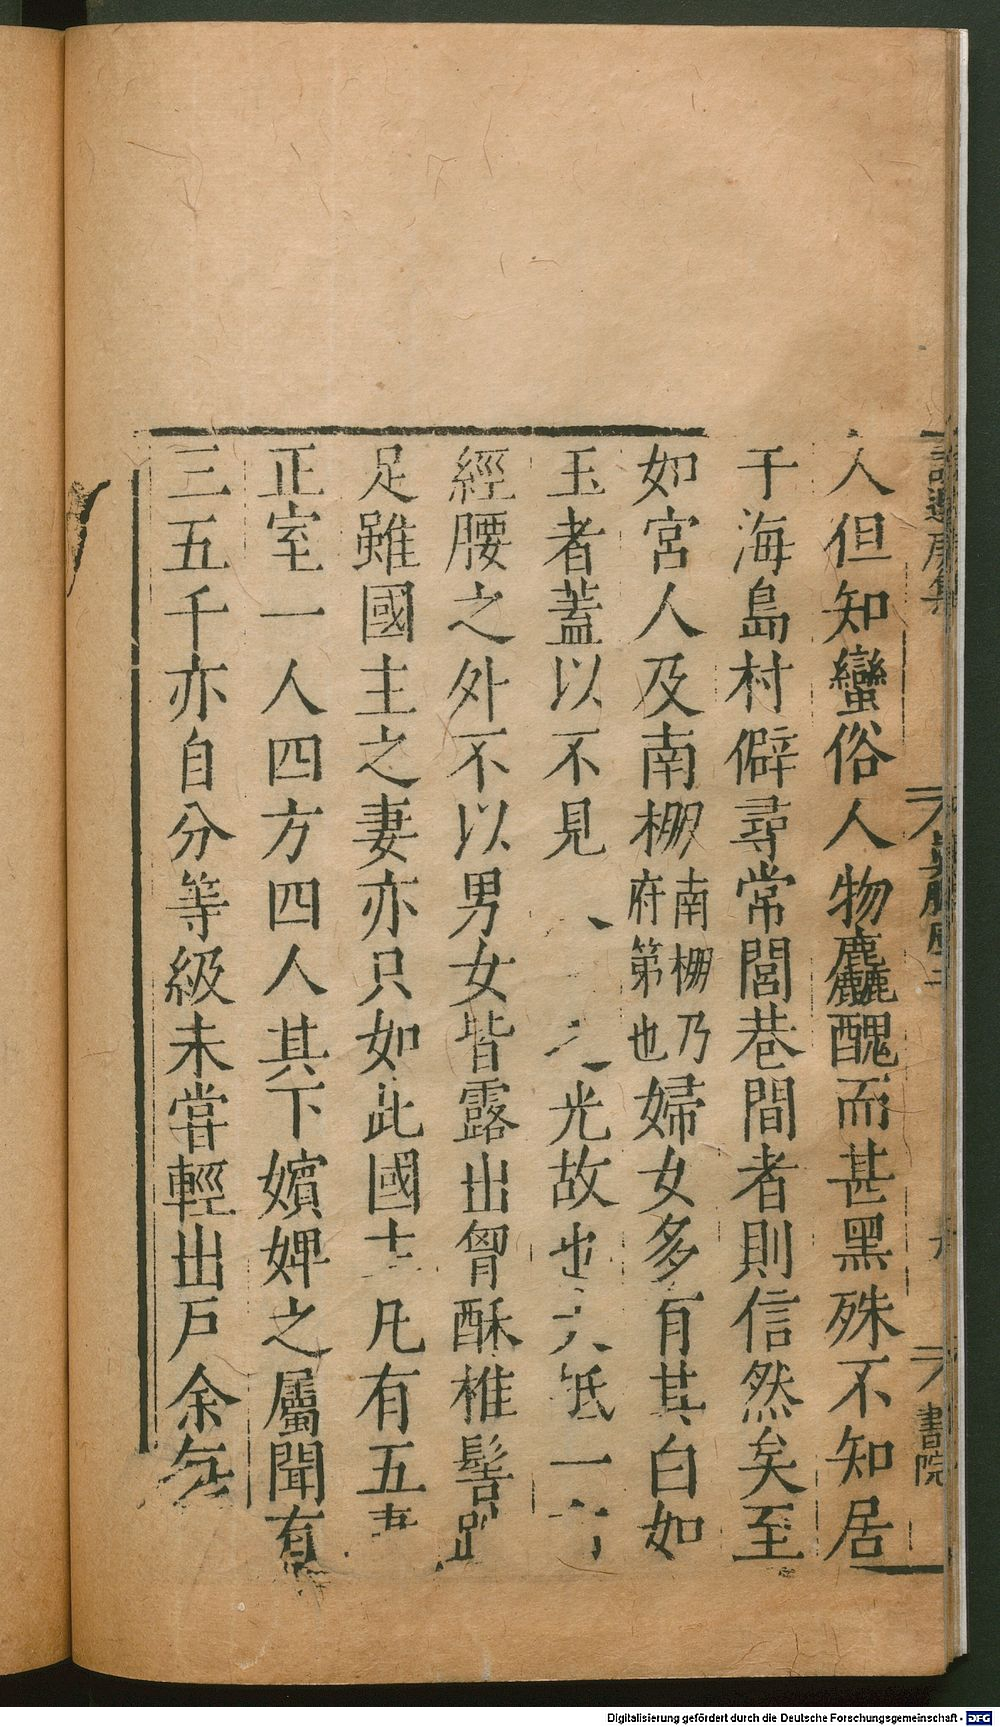 人但知蠻俗人物麤醜而甚黑殊不知居
于海島村僻尋常閭巷間者則信然矣至
如宮人及南棚南棚乃府第也婦女多有其白如
玉者蓋以不見光故也大抵一
經腰之外不以男女皆露出胷酥椎髻跣
足雖國主之妻亦只如此國主凡有五妻
正室一人四方四人其下嬪婢之屬聞有
三五千亦自分等級未嘗輕出戶余每
書院
Digitalisierung gefördert durch die Deutsche Forschungsgemeinschaft - DFG